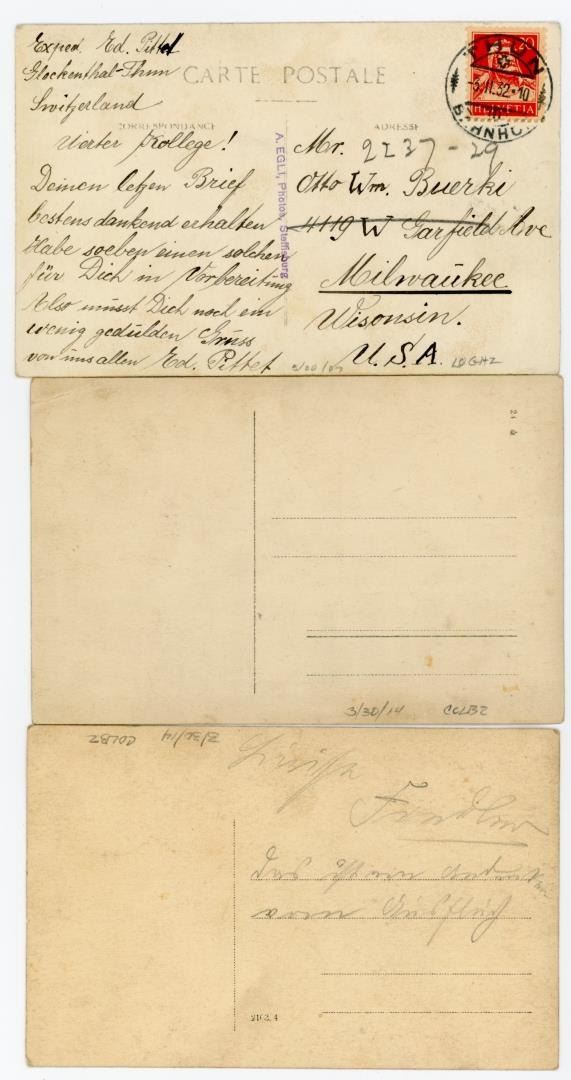 Exped. Ed. Pittet
Glockenthal-Thun
Switzerland
CARTE POSTALE
CORRESPONDANCE
ADRESSE
20
HELVETIA
THUN
-3.II.32-10
BAHNHOF
Werter Kollege!
Deinen letzen Brief
bestens dankend erhalten
Habe soeben einen solchen
für Dich in Vorbereitung
Also musst Dich noch ein
wenig gedulden Gruss
von uns allen Ed. Pittet
A. EGLI, Photos, Steffisburg
Mr. 2237-29
Otto Wm. Buerki
4119 W Garfield Ave
Milwaukee
Wisonsin.
U.S.A.
3/30/14 COLBZ
COLBZ 3/30/14
das ist ein
vom Ausflug
2162.4